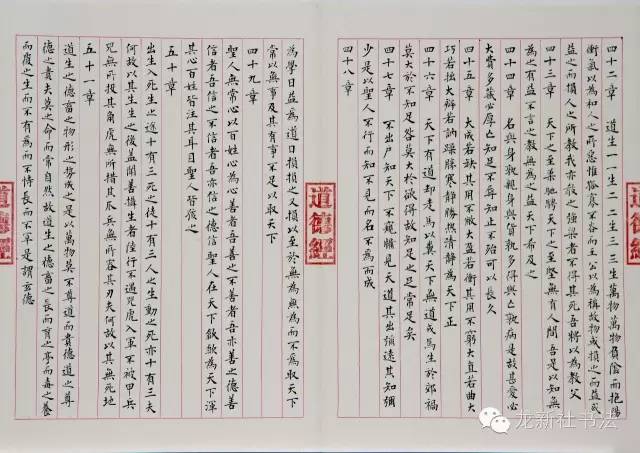 四十二章 道生一一生二二生三三生萬物萬物負陰而抱陽
衝氣以為和人之所惡惟孤寡不谷而王公以為稱故物或損之而益或
益之而損人之所教我亦教之強梁者不得其死吾將以為教父
四十三章 天下之至柔馳騁天下之至堅無有入無間吾是以知無
為之有益不言之教無為之益天下希及之
四十四章 名與身孰親身與貨孰多得與亡孰病是故甚愛必
大費多藏必厚亡知足不辱知止不殆可以長久
四十五章 大成若缺其用不敝大盈若衝其用不窮大直若曲大
巧若拙大辯若訥躁勝寒靜勝熱清靜為天下正
四十六章 天下有道却走馬以糞天下無道戎馬生於郊禍
莫大於不知足咎莫大於欲得故知足之足常足矣
四十七章 不出戶知天下不窺牖見天道其出彌遠其知彌
少是以聖人不行而知不見而名不為而成
四十八章
道德經
為學日益為道日損損之又損以至於無為無為而不為取天下
常以無事及其有事不足以取天下
四十九章
聖人無常心以百姓心為心善者吾善之不善者吾亦善之德善
信者吾信之不信者吾亦信之德信聖人在天下歙歙為天下渾
其心百姓皆注其耳目聖人皆孩之
五十章
出生入死生之徒十有三死之徒十有三人之生動之死亦十有三夫
何故以其生生之後蓋聞善攝生者陸行不遇兕虎入軍不被甲兵
兕無所投其角虎無所措其爪兵無所容其刃夫何故以其無死地
五十一章
道生之德畜之物形之勢成之是以萬物莫不尊道而貴德道之尊
德之貴夫莫之命而常自然故道生之德畜之長而育之亭而毒之養
而覆之生而不有為而不恃長而不宰是謂玄德
道德經
龙新社书法